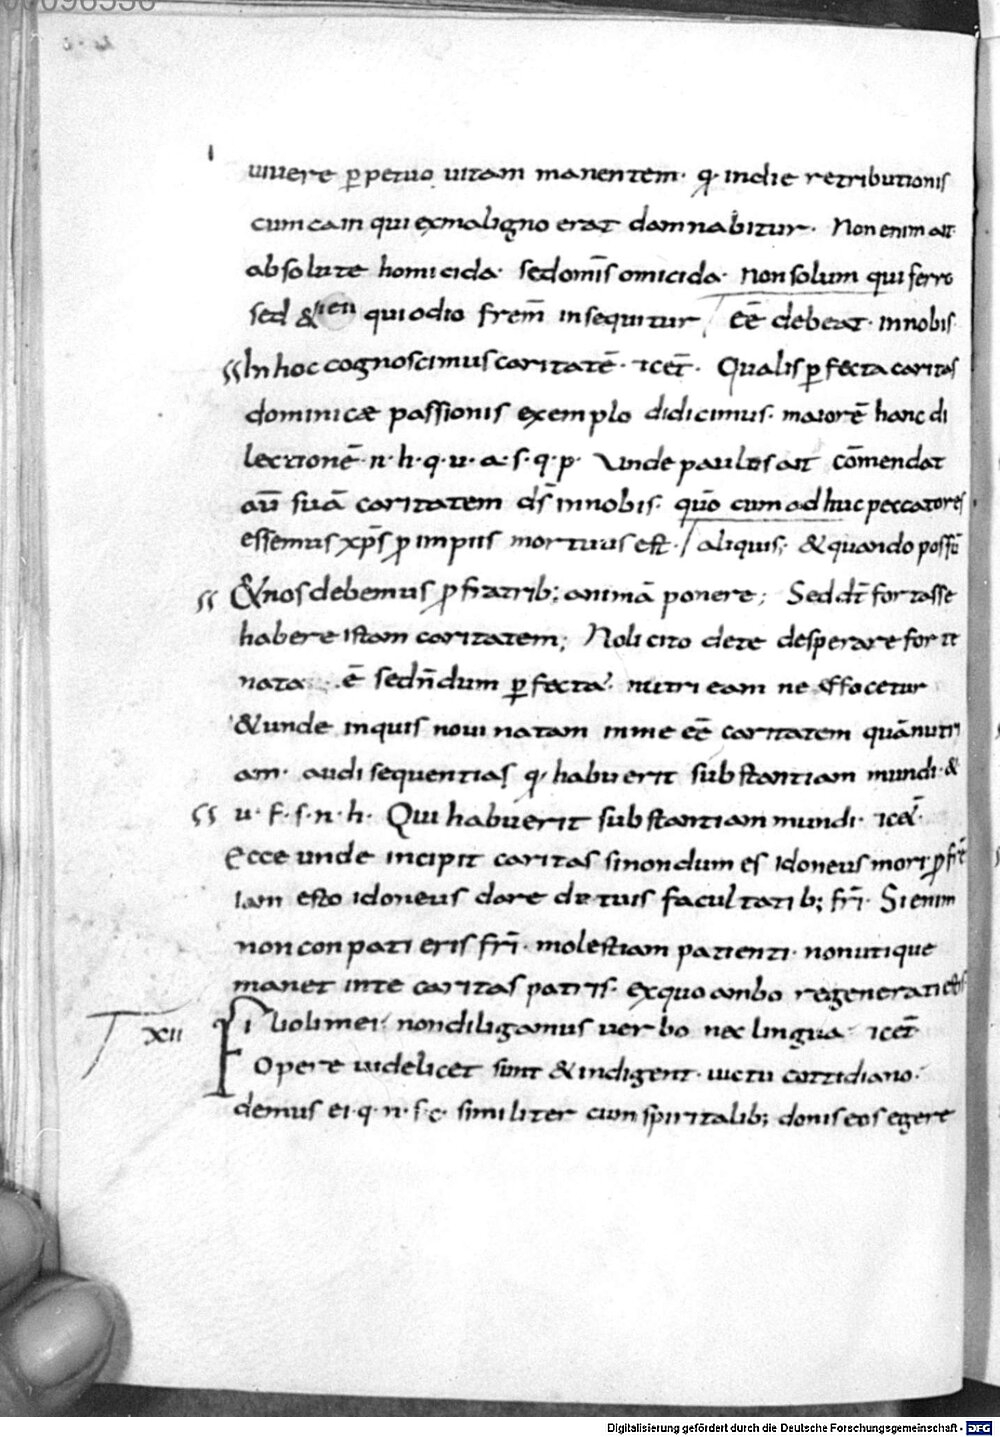 00096536
uiuere p̱petuo uitam manentem· q· indie retributionis
cum cain qui exmaligno erat damnabitur· Non enim ait
absolute homicida· sedom̄is omicida· non solum qui ferro
sed & iam qui odio frem̄ insequitur / eē debeat· innobis·
In hoc cognoscimus caritatē· & cet̄· Qualis p̱fecta caritas
dominicæ passionis exemplo didicimus· maiorē hanc di
lectionē· n· h· q· u· a· s· q· p· Unde paulus ait cōmendat
aū suā caritatem ds̄ innobis· quō cum adhuc peccatores
essemus xp̄s p̱ impiis mortuus est· / aliquis; & quando possū
& nos debemus p̱ fratrib; animā ponere; Sed dt̄ fortasse
habere istam caritatem; Noli cito dete desperare forte
nata ē sed n̄dum p̱fecta· nutri eam ne effocetur
& unde inquis noui natam inme eē caritatem quā nutri
am· audi sequentias q· habuerit substantiam mundi· &
u· f· s· n· h· Qui habuerit substantiam mundi· & cet̄·
Ecce unde incipit caritas si nondum es idoneus mori p̱ fr̄e
Iam esto idoneus dare detuis facultatib; fr̄i· Si enim
non conpati eris fr̄i· molestiam patienti· non utique
manet inte caritas patris· exquo ambo regenerati estis
XII Filioli mei· non diligamus uerbo nec lingua· & cet̄·
Opere uidelicet sunt & indigent· uictu cottidiano·
demus ei· q· n· s· c· similiter cum spiritalib; donis eos egere
Digitalisierung gefördert durch die Deutsche Forschungsgemeinschaft - DFG